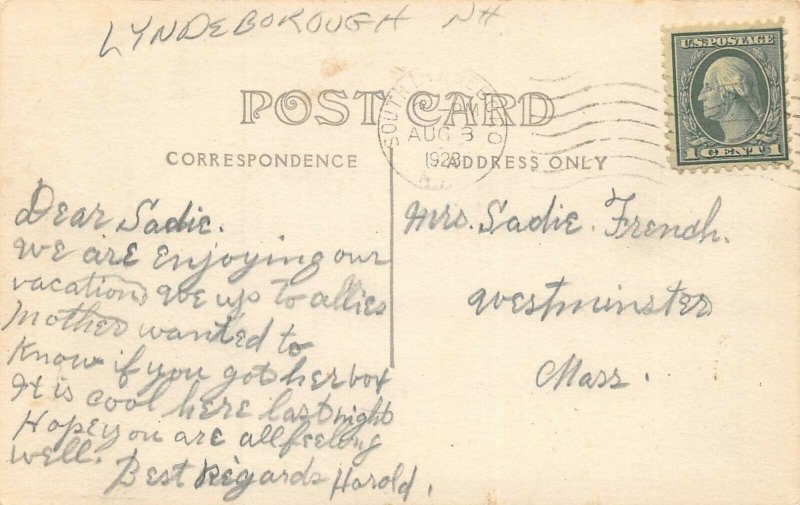 LYNDEBOROUGH NH
U.S. POSTAGE
1 CENT 1
POST CARD
SOUTH
AUG 3
1923
CORRESPONDENCE
ADDRESS ONLY
Dear Sadie.
We are Enjoying our
vacation, we up to allies
Mother wanted to
Know if you got her box
It is cool here last night
Hope you are all feeling
well.
Best Regards Harold.
Mrs. Sadie. French.
Westminster
Mass.